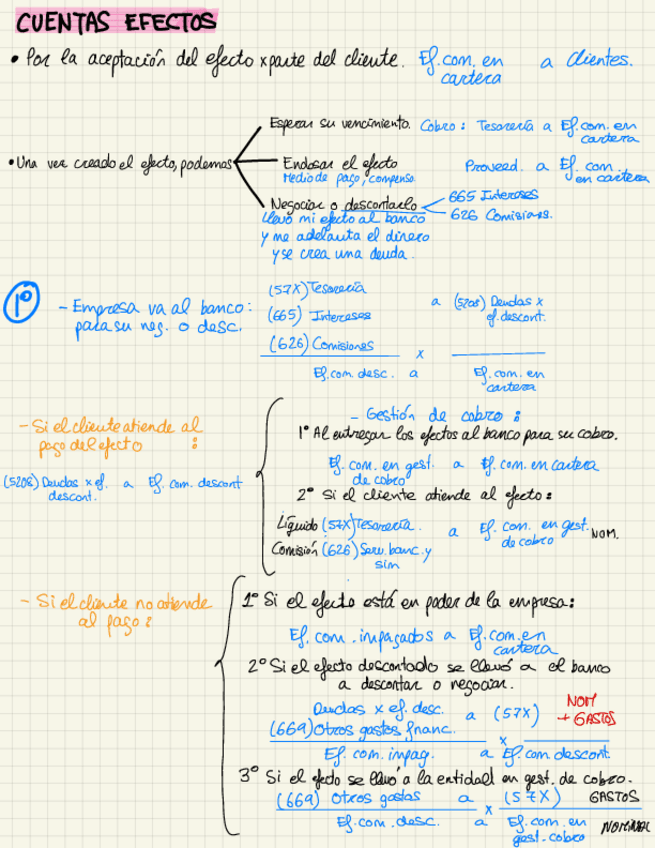 CUENTAS EFECTOS
• Por la aceptación del efecto x parte del cliente. Ef. com. en cartera a Clientes.
Esperar su vencimiento. Cobro: Tesorería a Ef. com. en cartera
• Una vez creado el efecto, podemos
Endosar el efecto Proveed. a Ef. com. en cartera
Medio de pago, compenso
Negociar o descontarlo
665 Intereses
626 Comisiones.
Llevo mi efecto al banco
y me adelanta el dinero
y se crea una deuda.
1º
- Empresa va al banco:
para su neg. o desc.
(57X) Tesorería a (5208) Deudas x ef. descont.
(665) Intereses
(626) Comisiones x
Ef. com. desc. a Ef. com. en cartera
- Si el cliente atiende al
pago del efecto :
(5208) Deudas x ef. descont. a Ef. com. descont
- Gestión de cobro :
1º Al entregar los efectos al banco para su cobro.
Ef. com. en gest. de cobro a Ef. com. en cartera
2º Si el cliente atiende al efecto :
Líquido (57X) Tesorería. a Ef. com. en gest. de cobro NOM.
Comisión (626) Serv. banc. y sim
- Si el cliente no atiende
al pago :
1º Si el efecto está en poder de la empresa :
Ef. com. impagados a Ef. com. en cartera
2º Si el efecto descontado se llevó a el banco
a descontar o negociar.
Deudas x ef. desc. a (57X) NOM + GASTOS
(669) Otros gastos financ. x
Ef. com. impag. a Ef. com. descont.
3º Si el efecto se llevó a la entidad en gest. de cobro.
(669) Otros gastos a (57X) GASTOS
x
Ef. com. desc. a Ef. com. en gest. cobro NOMINAL